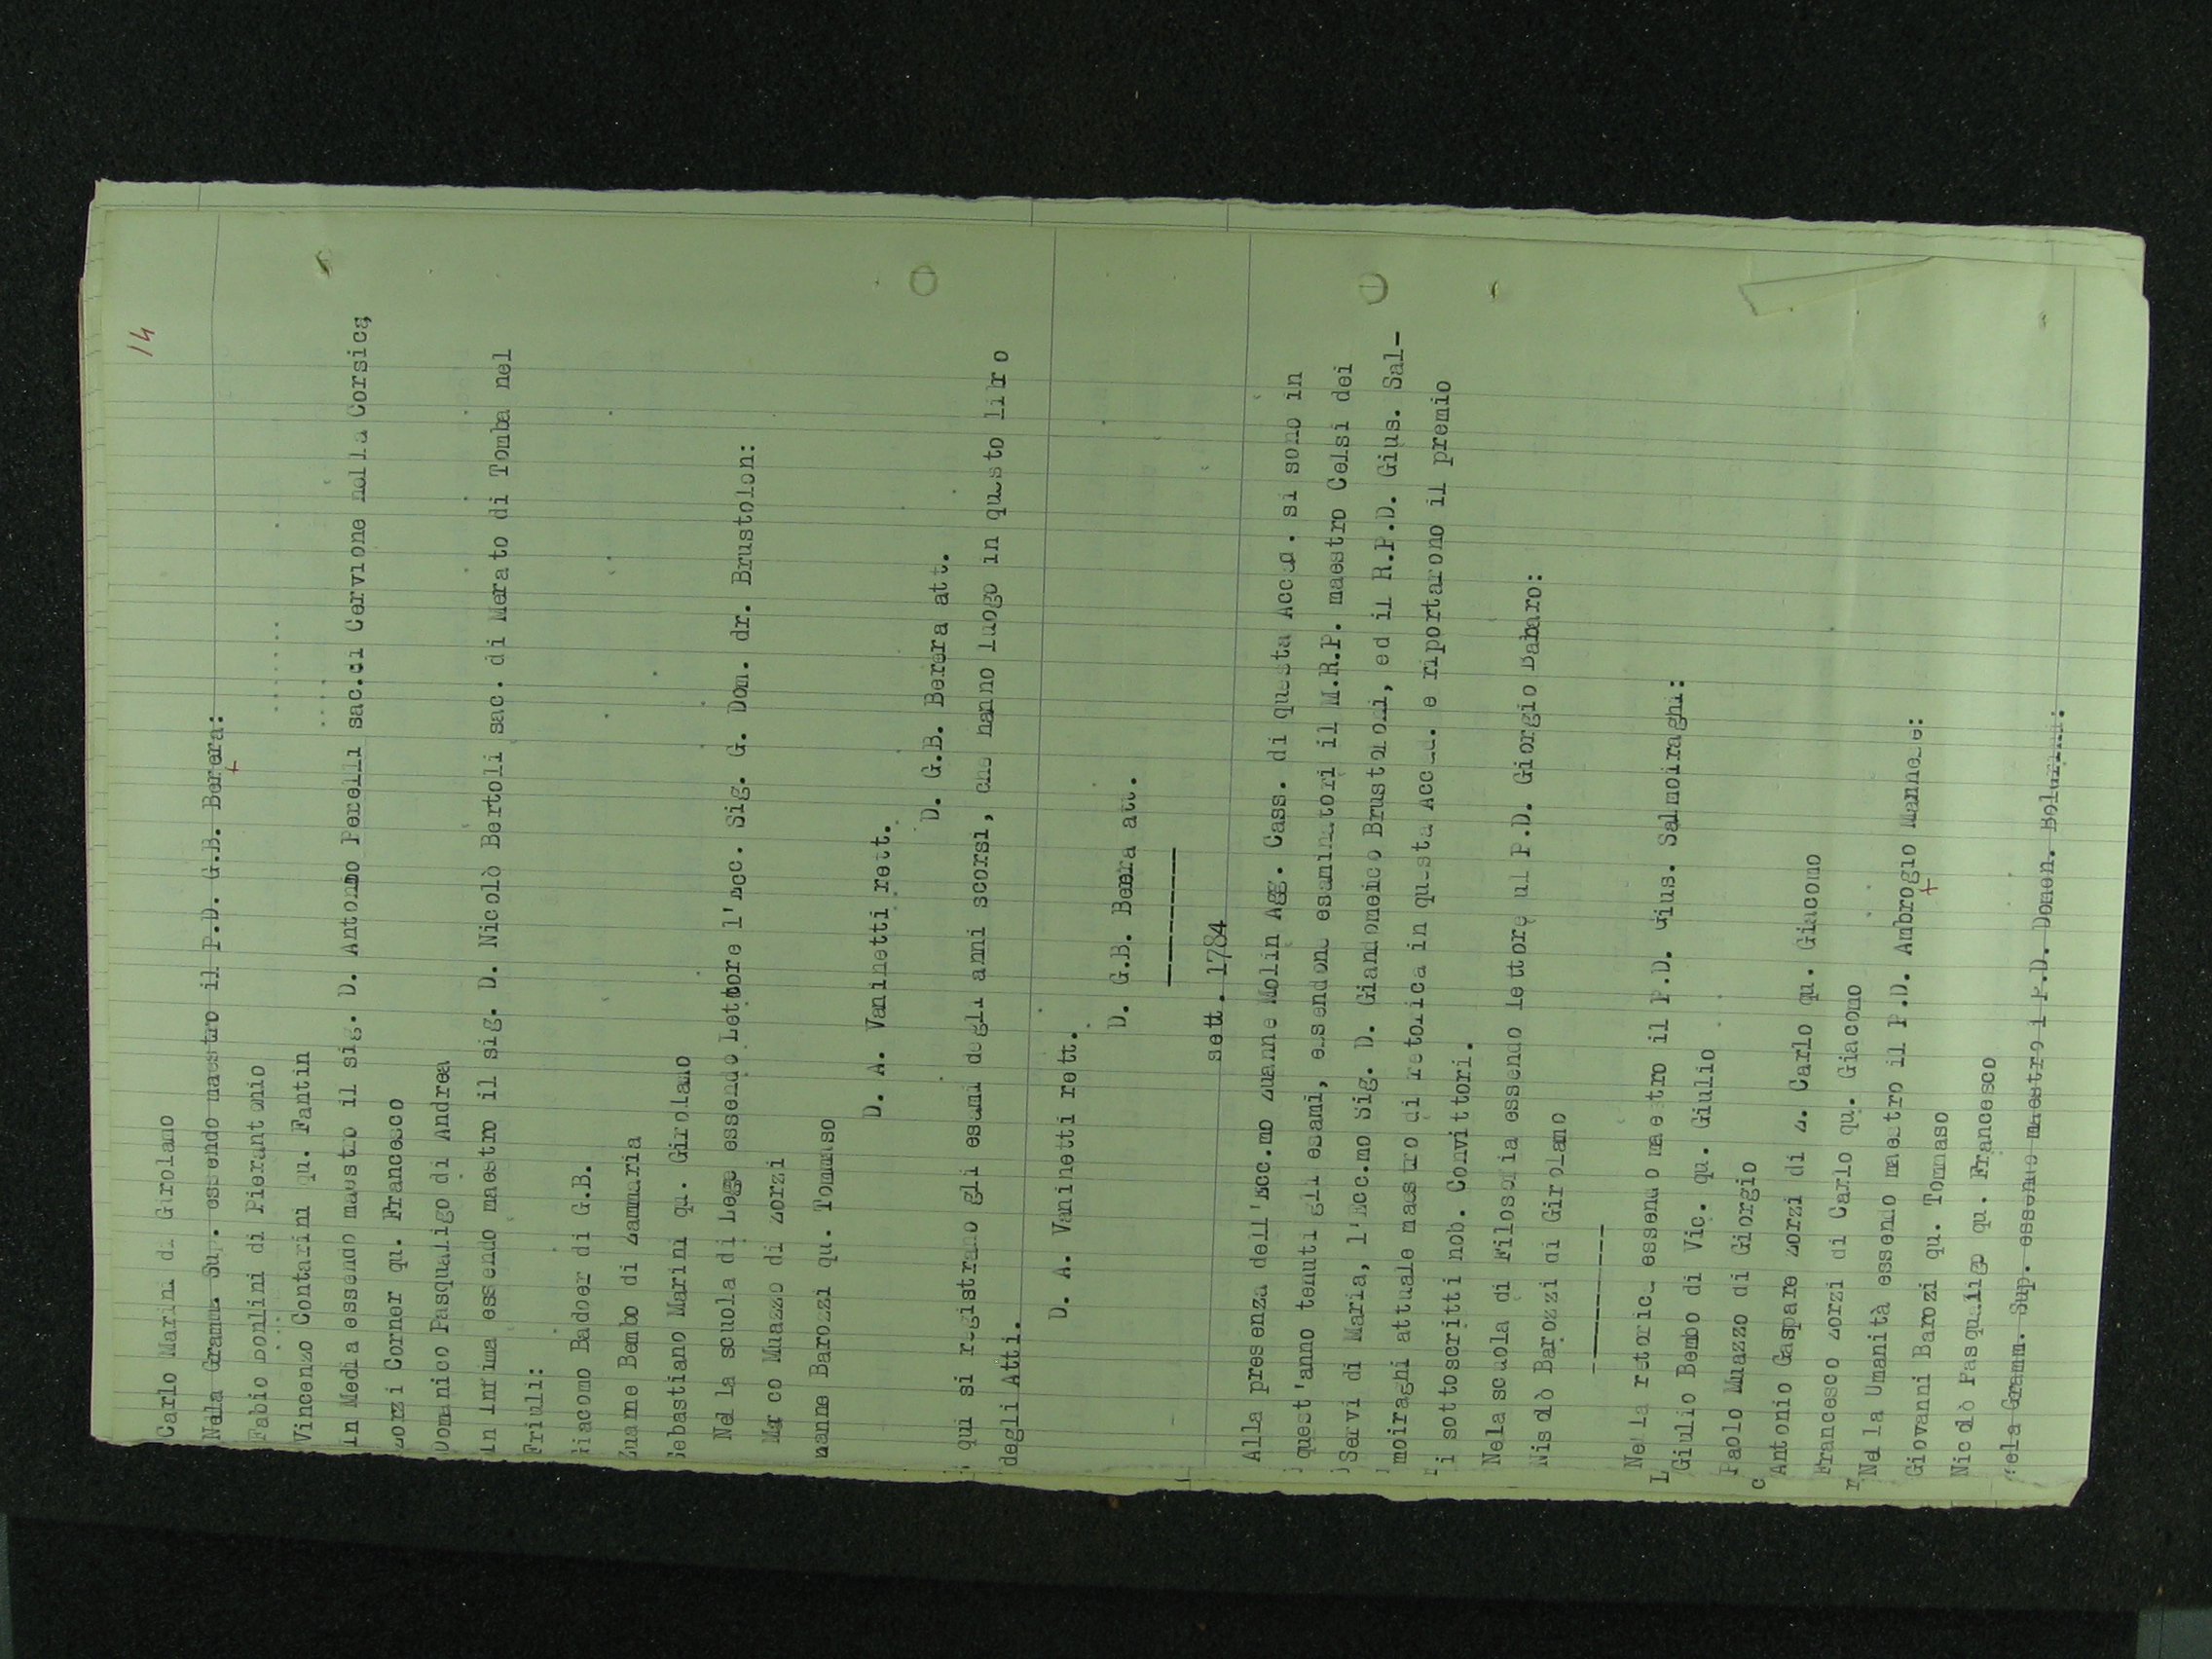 14
Carlo Marini di Girolamo
Nela Gramm. Sup. essendo maestro il P.D. G.B. Berera:
Fabio Bonlini di Pierantonio
Vincenzo Contarini qu. Fantin
in Media essendo maestro il sig. D. Antonio Perelli sac.di Cervione nella Corsica
Zorzi Corner qu. Francesco
Domenico Pasqualigo di Andrea
in Infima essendo maestro il sig. D. Nicolò Bertoli sac. di Merato di Tomba nel
Friuli:
Giacomo Badoer di G.B.
Zuanne Bembo di Zammaria
Sebastiano Marini qu. Girolamo
Nel la scuola di Legge essendo Lettore l'Ecc. Sig. G. Dom. dr. Brustolon:
Marco Muazzo di Zorzi
Zanne Barozzi qu. Tommaso
D. A. Vaninetti rett.
D. G.B. Berera att.
qui si registrano gli esami degli anni scorsi, che hanno luogo in questo libro
degli Atti.
D. A. Vaninetti rett.
D. G.B. Berera att.
sett. 1784
Alla presenza dell'Ecc.mo Zuanne Molin Agg. Cass. di questa Accad. si sono in
quest'anno tenuti gli esami, essendone esaminatori il M.R.P. maestro Celsi dei
Servi di Maria, l'Ecc.mo Sig. D. Giandomenico Brustoloni, ed il R.P.D. Gius. Sal-
moiraghi attuale maestro di retorica in questa Accad. e riportarono il premio
i sottoscritti nob. Convittori.
Nela scuola di Filosofia essendo lettore ul P.D. Giorgio Babaro:
Nisolò Barozzi di Girolamo
Nella retorica essendo maestro il P.D. Gius. Salmoiraghi:
Giulio Bembo di Vic. qu. Giulio
Paolo Muazzo di Giorgio
Antonio Gaspare Zorzi di Z. Carlo qu. Giacomo
Francesco Zorzi di Carlo qu. Giacomo
Nel la Umanità essendo maestro il P.D. Ambrogio
Giovanni Barozi qu. Tommaso
Nicolò Pasqualigo qu. Francesco
Nela Gramm. Sup. essendo maestro i P.D. Domen.